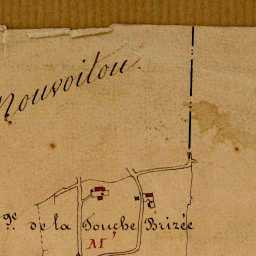 Nouvoitou
ge. de la Touche Brizée
M